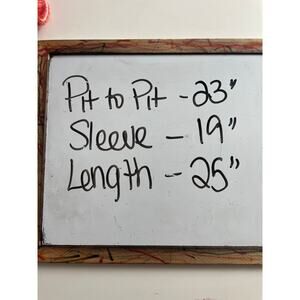 Pit to Pit - 23"
Sleeve - 19"
Length - 25"